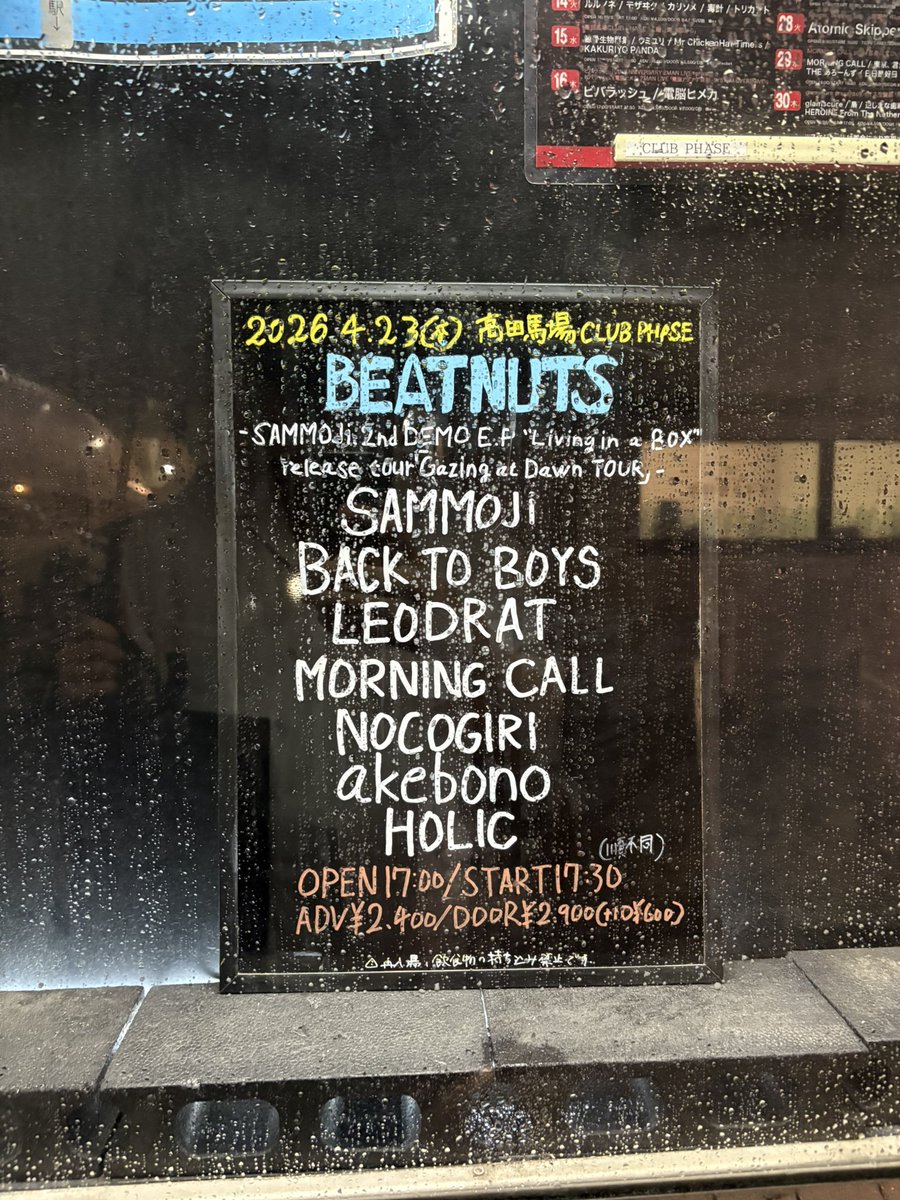 駅
14火
ルルノネ / モザヰク / カリソメ / 海計 / トリカト
15水
KAKURIYO PANDA
16木
ビバラッシュ / 電脳ヒメカ
28火
Atomic Skipper
29水
MORNING CALL /
30木
glamscure /
HEROINE From The Nether
CLUB PHASE
2026.4.23(木) 高田馬場CLUB PHASE
BEATNUTS
-SAMMOJi. 2nd DEMO E.P "Living in a BOX"
release tour "Gazing at Dawn TOUR„-
SAMMOJI
BACK TO BOYS
LEODRAT
MORNING CALL
NOCOGIRI
akebono
HOLIC
(順不同)
OPEN17:00/START17:30
ADV¥2.400/DOOR¥2.900(+1D¥600)
△再入場、飲食物の持ち込み禁止です。